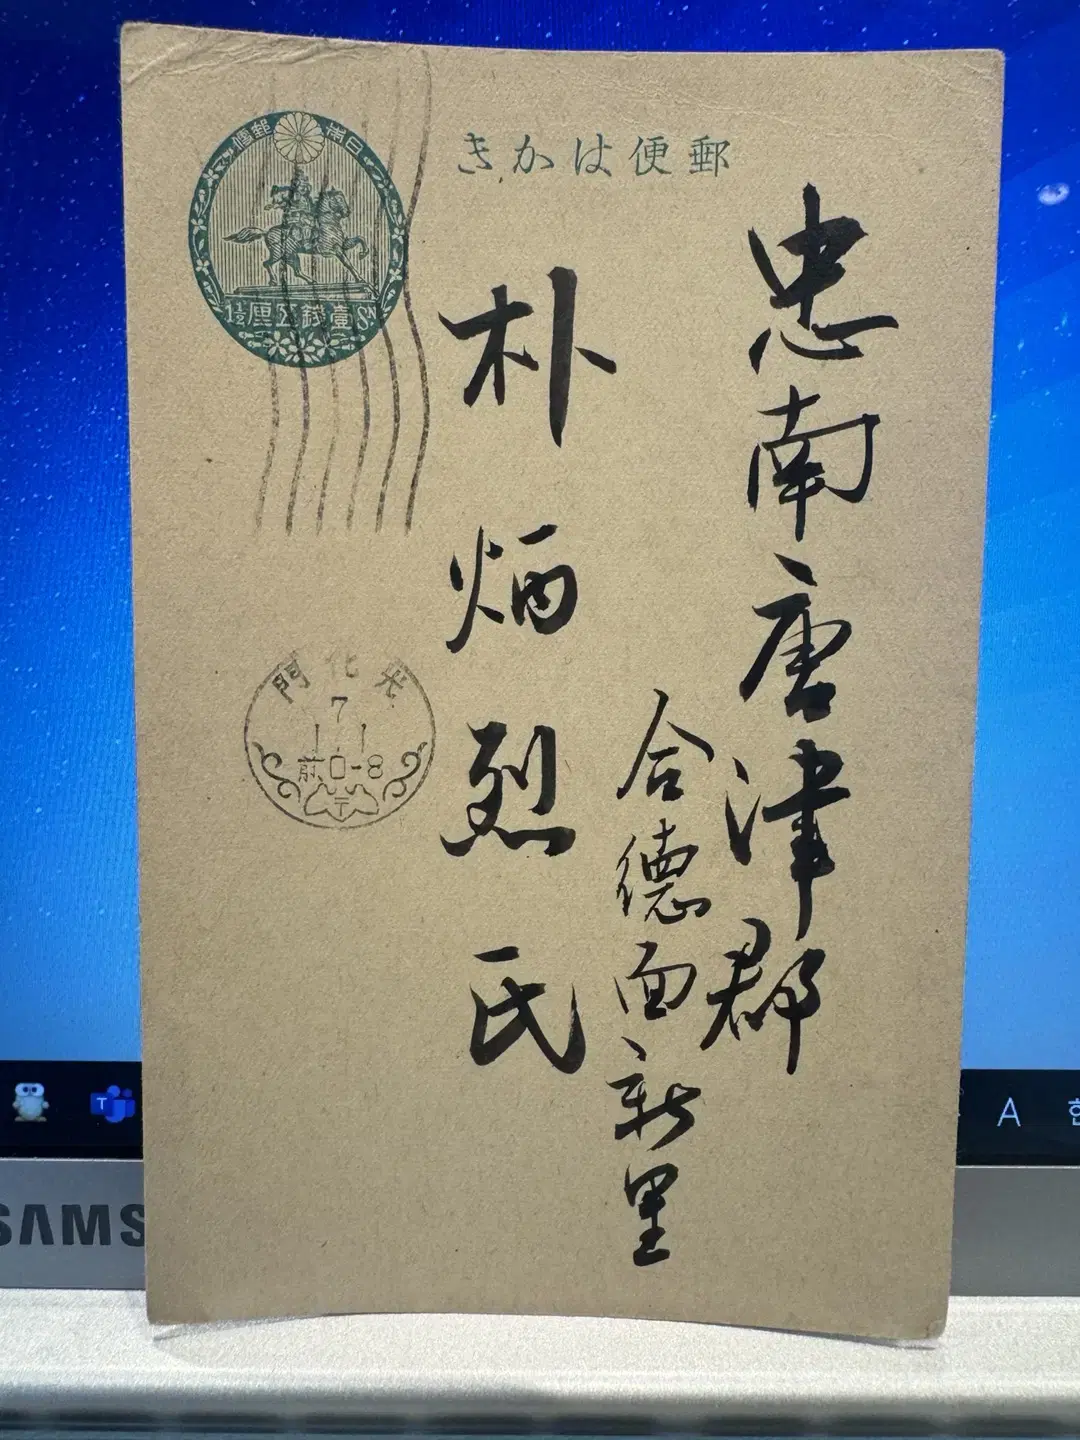 郵便はかき
日本郵便
1½壹錢五厘Sn
忠南唐津郡
合德面新里
朴炳烈氏
光化門
7
1.1
前0-8
〒
SAMS
A
한
T